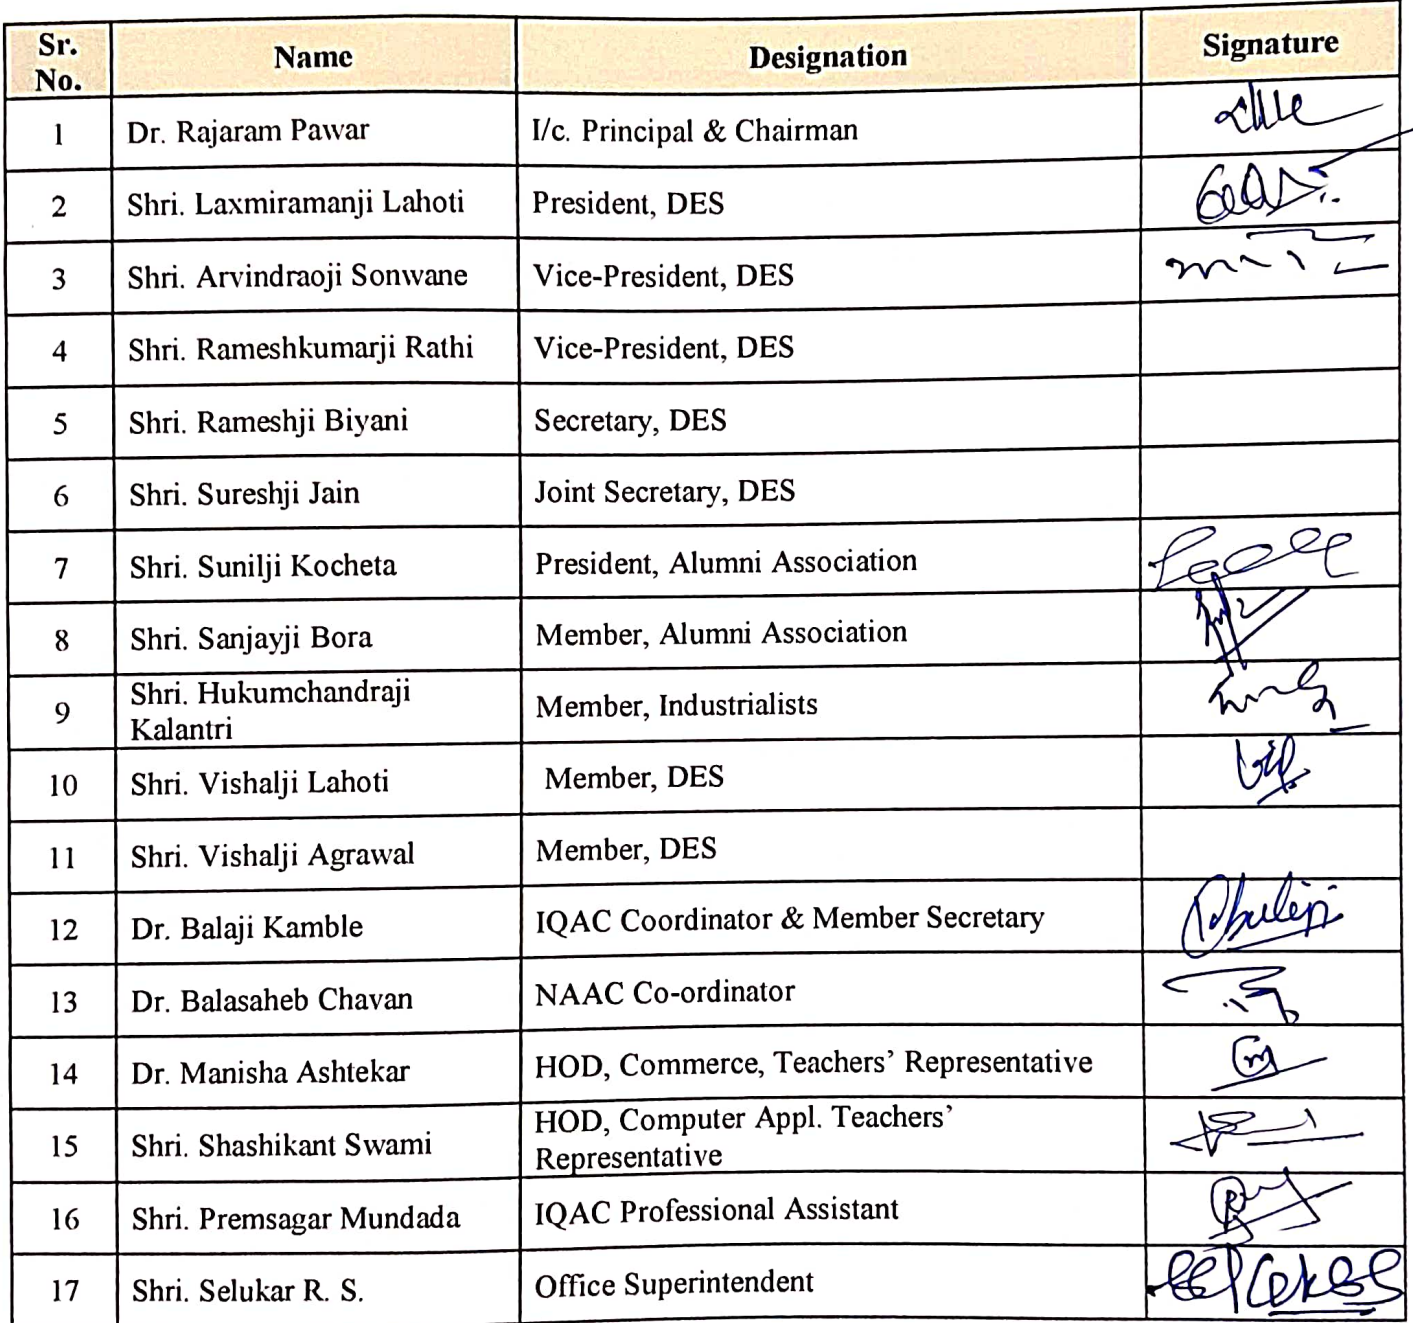 Sr. No. Name Designation Signature
1 Dr. Rajaram Pawar I/c. Principal & Chairman
2 Shri. Laxmiramanji Lahoti President, DES
3 Shri. Arvindraoji Sonwane Vice-President, DES
4 Shri. Rameshkumarji Rathi Vice-President, DES
5 Shri. Rameshji Biyani Secretary, DES
6 Shri. Sureshji Jain Joint Secretary, DES
7 Shri. Sunilji Kocheta President, Alumni Association
8 Shri. Sanjayji Bora Member, Alumni Association
9 Shri. Hukumchandraji
Kalantri Member, Industrialists
10 Shri. Vishalji Lahoti Member, DES
11 Shri. Vishalji Agrawal Member, DES
12 Dr. Balaji Kamble IQAC Coordinator & Member Secretary
13 Dr. Balasaheb Chavan NAAC Co-ordinator
14 Dr. Manisha Ashtekar HOD, Commerce, Teachers’ Representative
15 Shri. Shashikant Swami HOD, Computer Appl. Teachers’
Representative
16 Shri. Premsagar Mundada IQAC Professional Assistant
17 Shri. Selukar R. S. Office Superintendent